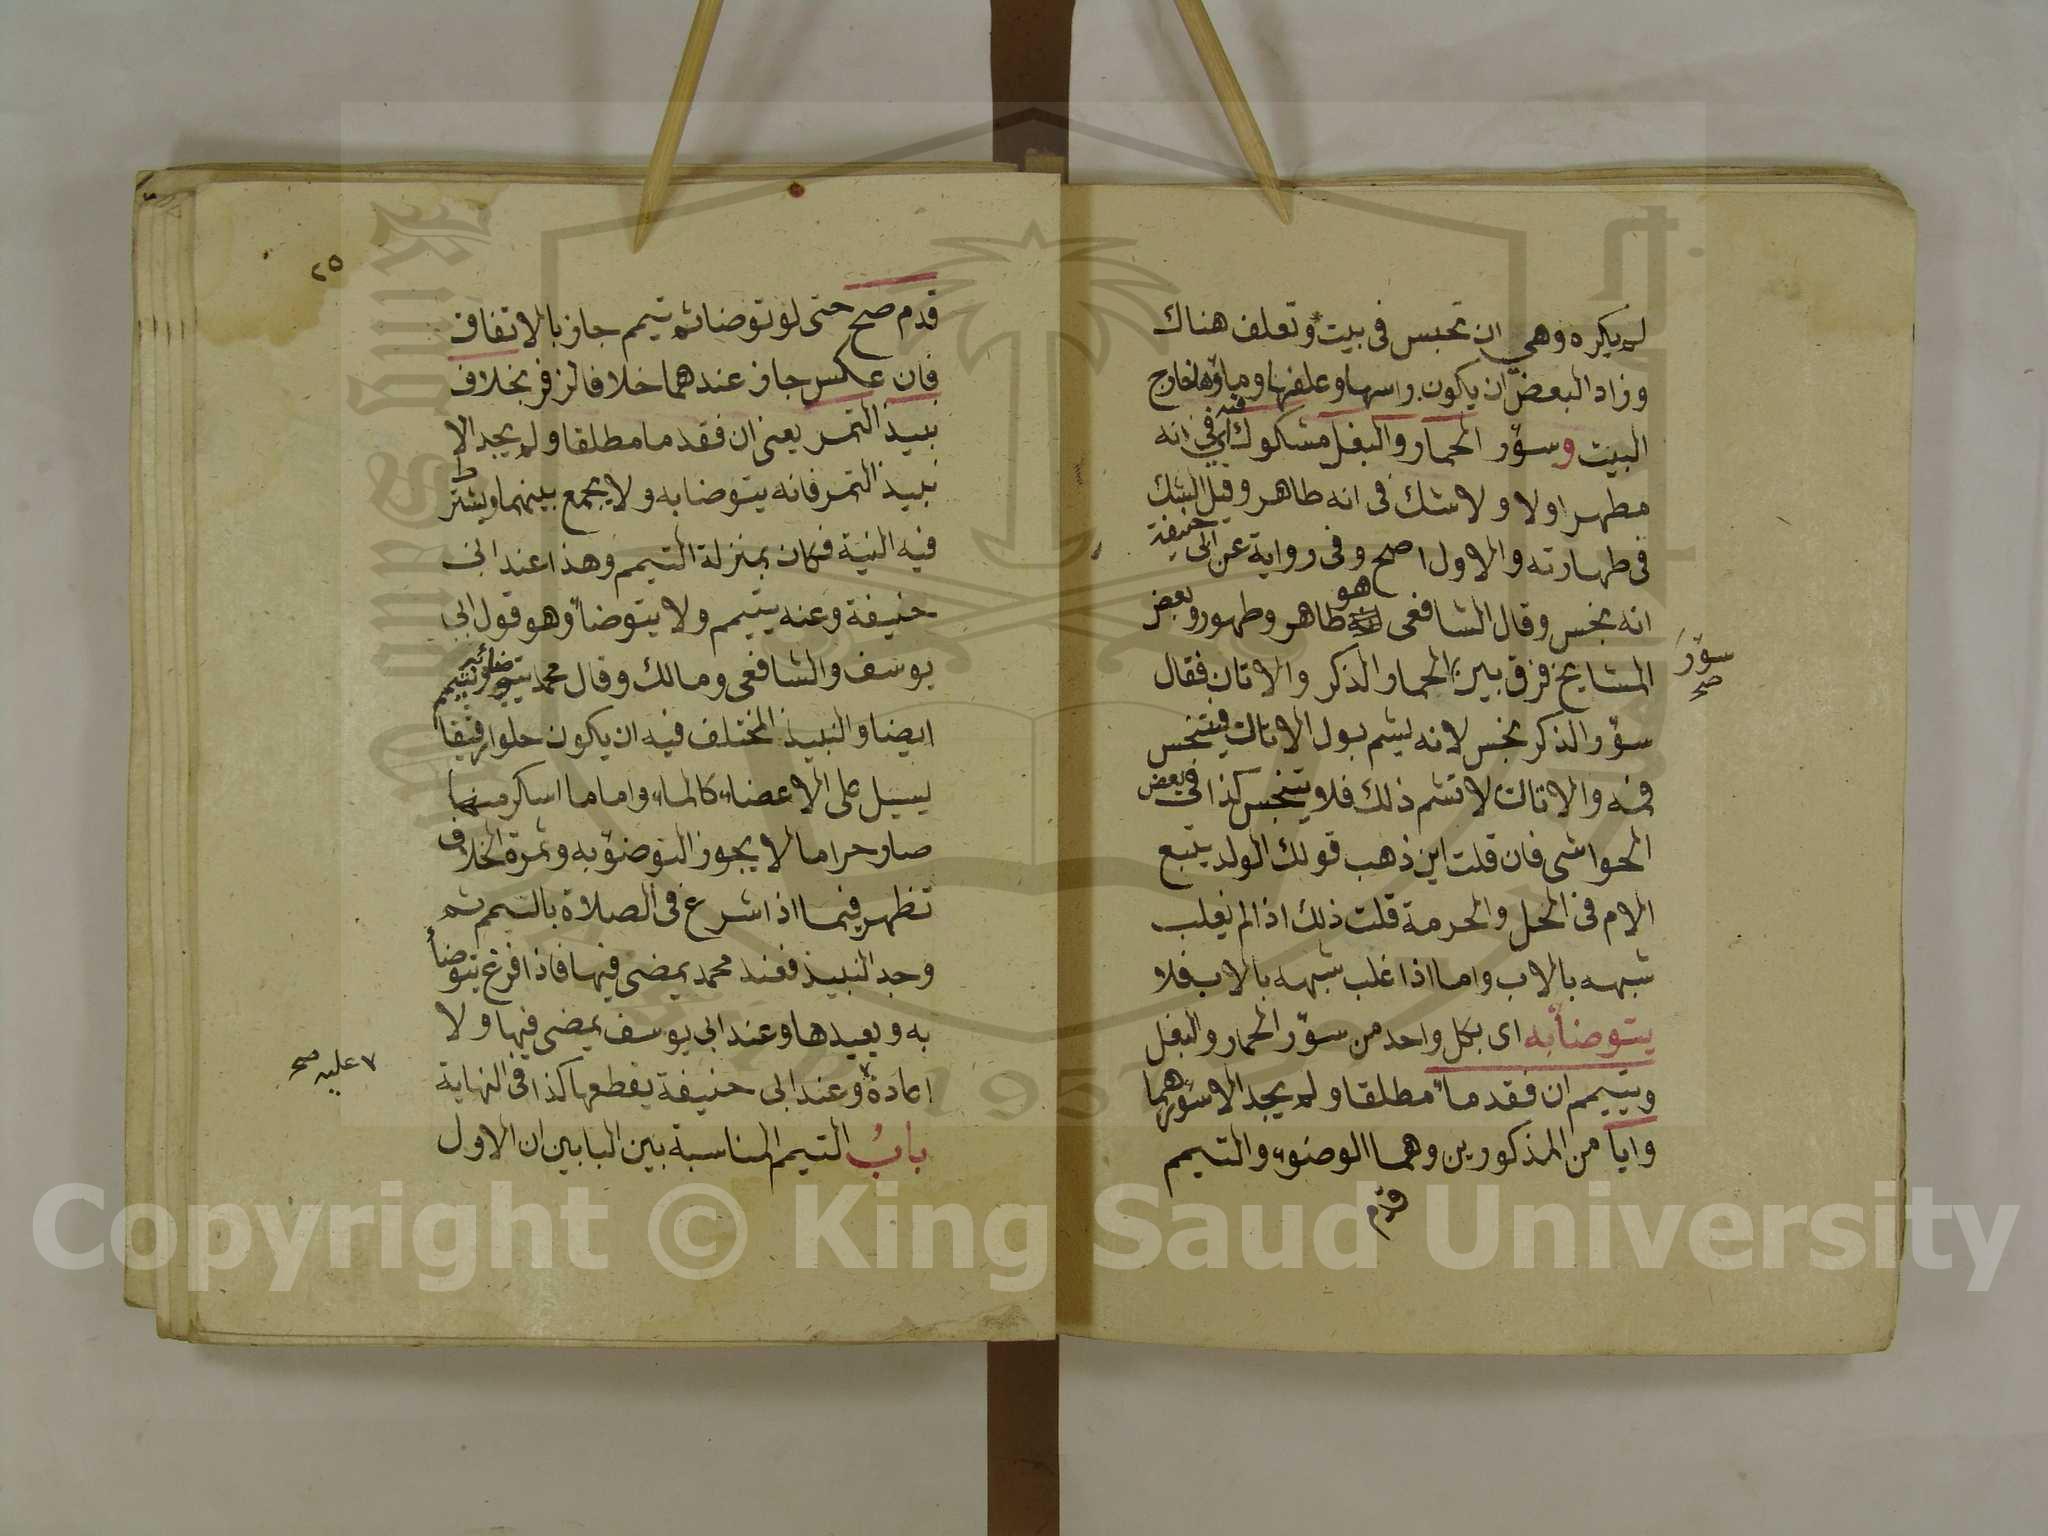 لم يكره وهي ان تحبس في بيت وتعلف هناك
وزاد البعض ان يكون راسها وعلفها وماؤها خارج
البيت وسؤر الحمار والبغل مشكوك فيه اي في انه
مطهر اولا ولا شك في انه طاهر وقيل الشك
في طهارته والاول اصح وفي رواية عن ابي حنيفة
انه نجس وقال الشافعي هو طاهر وطهور وبعض
المشايخ فرق بين الحمار الذكر والاتان فقال
سؤر
صح
سؤر الذكر نجس لانه يشم بول الاتان فيتنجس
فمه والاتان لا تشم ذلك فلا يتنجس كذا في بعض
الحواشي فان قلت اين ذهب قولك الولد يتبع
الام في الحل والحرمة قلت ذلك اذا لم يغلب
شبهه بالاب واما اذا غلب شبهه بالاب فلا
يتوضأ به اي بكل واحد من سؤر الحمار والبغل
ويتيمم ان فقد ماء مطلقا ولم يجد الا سؤرهما
وايا من المذكورين وهما الوضوء والتيمم
قدم
٢٥
قدم صح حتى لو توضا ثم تيمم جاز بالاتفاق
فان عكس جاز عندهما خلافا لزفر بخلاف
نبيذ التمر يعني ان فقد ما مطلقا ولم يجد الا
نبيذ التمر فانه يتوضا به ولا يجمع بينهما ويشترط
فيه النية فكان بمنزلة التيمم وهذا عند ابي
حنيفة وعنه يتيمم ولا يتوضأ وهو قول ابي
يوسف والشافعي ومالك وقال محمد يتوضأ به ويتيمم
ايضا والنبيذ المختلف فيه ان يكون حلوا رقيقا
يسيل على الاعضاء كالماء واما ما اسكر منها
صار حراما لا يجوز التوضؤ به وثمرة الخلاف
تظهر فيما اذا شرع في الصلاة بالتيمم ثم
وجد النبيذ فعند محمد يمضي فيها فاذا فرغ يتوضأ
به ويعيدها وعند ابي يوسف يمضي فيها ولا
اعادة وعند ابي حنيفة يقطعها كذا في النهاية
٧ عليه صح
باب التيمم المناسبة بين البابين ان الاول
Copyright © King Saud University
1957